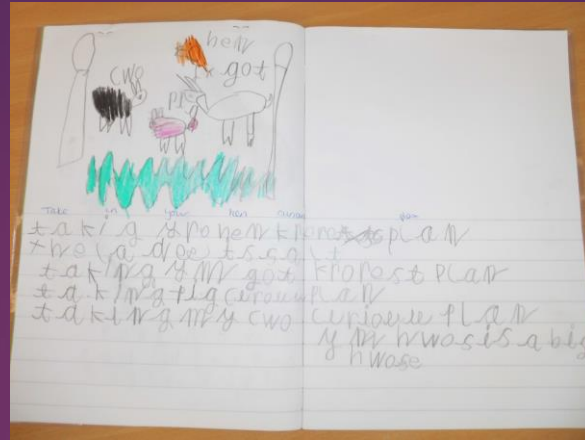 hen
got
cwo
pi
Take in your hen curious pen
takig ym hen krpnest plan
the (a doe) tssalt
taking ym got krpnest plan
taking pig curouuplan
taking my cwo curiouue plan
ym hwos is a big
hwose